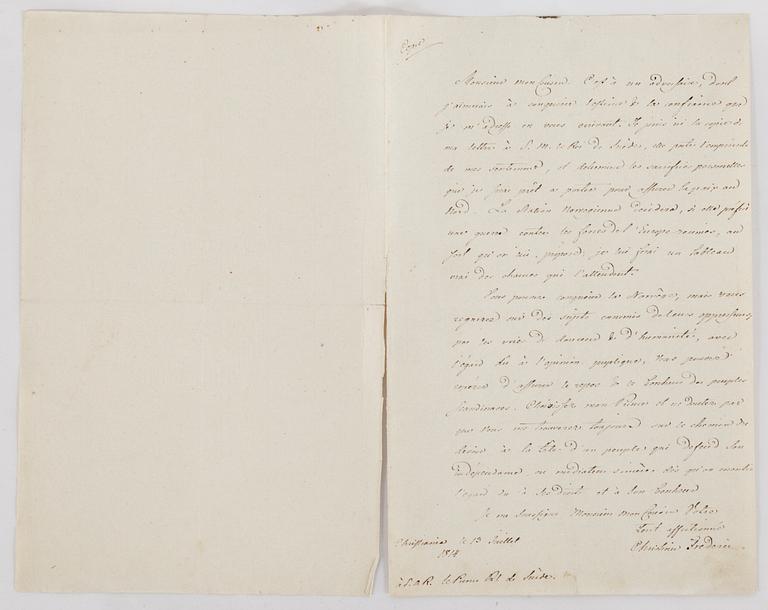 Copie
Monsieur mon Cousin. C'est à un adversaire, dont
j'aimerais à conquérir l'estime & la confiance que
je m'adresse en vous écrivant. Je joins ici la copie de
ma lettre à S. M. le Roi de Suède, elle porte l'empreinte
de mes sentimens, et détermine les sacrifices personnelles
que je serai prêt à porter pour assurer la paix au
Nord. La Nation Norvégienne décidera, si elle préfère
une guerre contre les forces de l'Europe reunies, au
sort qu'on lui propose, je lui ferai un tableau
vrai des chances qui l'attendent.
Vous pouvez conquérir la Norvège, mais vous
regnerez sur des sujets
par les voies de douceur & d'humanité, avec
l'égard dû à l'opinion publique, Vous pouvez
espérer d'assurer le repos & le bonheur des peuples
Scandinaves. Choisissez mon Prince et ne doutez pas
que Vous me trouverez toujours sur le chemin de
à la tête d'un peuple qui defend son
indépendance ou médiateur sincère dès qu'on
l'égard dû à ses droits et à son bonheur
Je me soussigne Monsieur mon Cousin Votre
tout affectionné
Christiania le 13 Juillet
1814
Christian Frederic
à S. A. R. le Prince Rl de Suède.